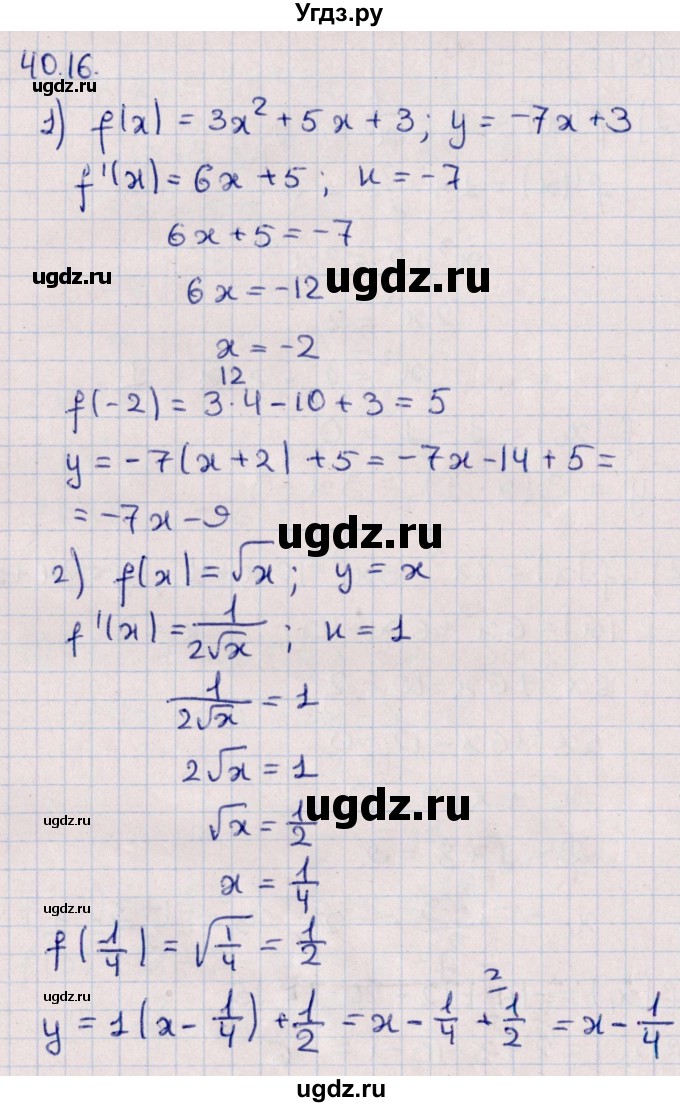 Угдз.ру
40.16.
ugdz.ru
1) f(x) = 3x² + 5x + 3; y = -7x + 3
f'(x) = 6x + 5; к = -7
6x + 5 = -7
ugdz.ru
ugdz.ru
6x = -12
x = -2
12
f(-2) = 3·4 - 10 + 3 = 5
ugdz.ru
y = -7(x + 2) + 5 = -7x - 14 + 5 =
= -7x - 9
ugdz.ru
2) f(x) = √x; y = x
f'(x) = 1/(2√x); к = 1
ugdz.ru
1/(2√x) = 1
2√x = 1
ugdz.ru
ugdz.ru
√x = 1/2
x = 1/4
ugdz.ru
f(1/4) = √(1/4) = 1/2
ugdz.ru
2
y = 1(x - 1/4) + 1/2 = x - 1/4 + 1/2 = x - 1/4
ugdz.ru